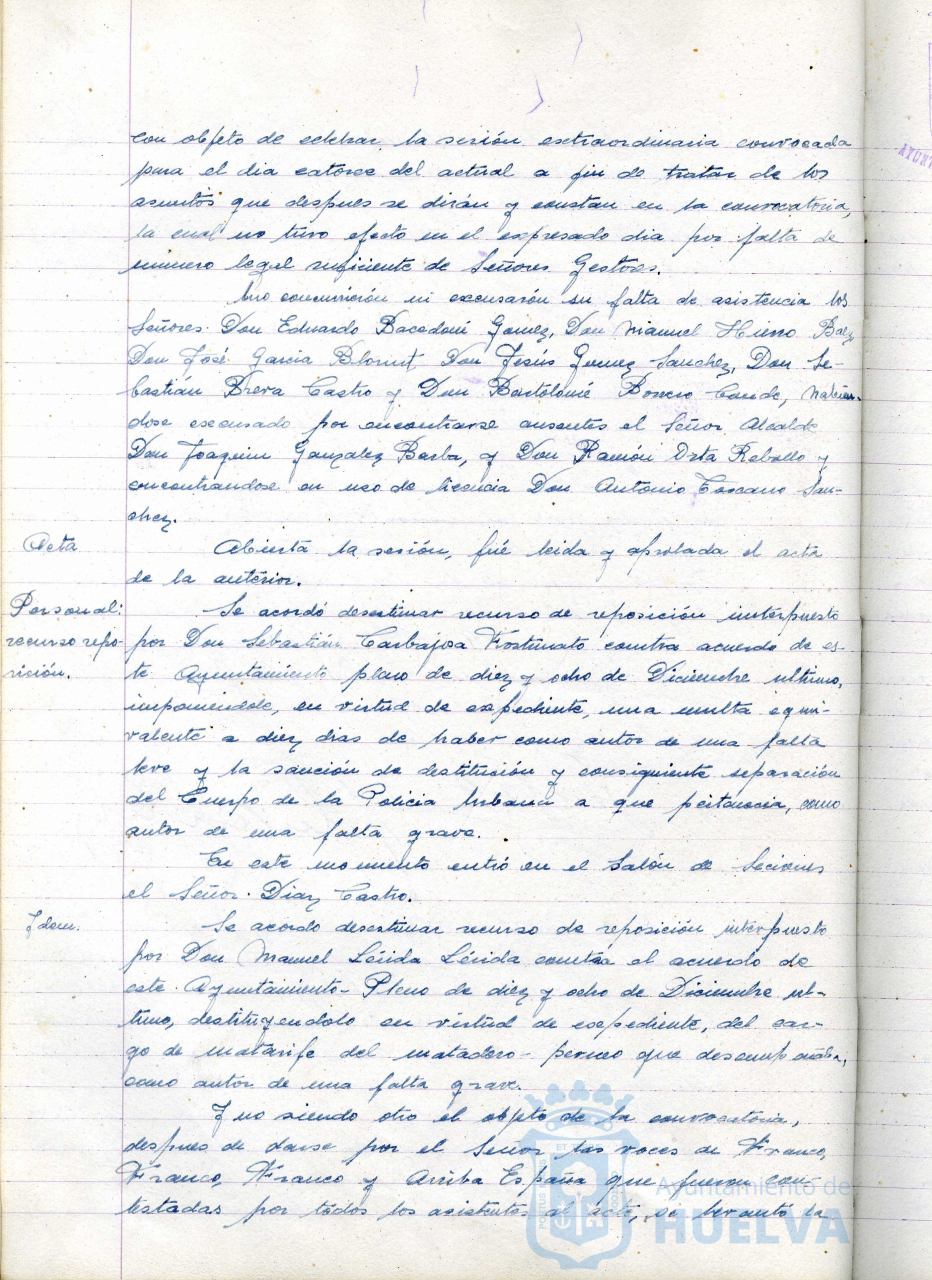 con objeto de celebrar la sesión extraordinaria convocada
para el dia catorce del actual a fin de tratar de los
asuntos que despues se dirán y constan en la convocatoria,
la cual no tuvo efecto en el expresado dia por falta de
numero legal suficiente de Señores Gestores.
No concurrieron ni excusarón su falta de asistencia los
Señores: Don Eduardo Gomez, Don Manuel Hierro Baez,
Don José Garcia Don Jesús Gomez Sanchez, Don Se-
bastián Brera Castro y Don Bartolomé Romero Conde, habien-
dose excusado por encontrarse ausentes el Señor Alcalde
Don Joaquin Gonzalez Barba, y Don Ramón Orta Rebollo y
encontrandose en uso de licencia Don Antonio Toscano San-
chez.
Acta
Abierta la sesión, fué leida y aprobada el acta
de la anterior.
Personal:
recurso repo-
sición.
Se acordó desestimar recurso de reposición interpuesto
por Don Sebastián Carbajosa Fortunato contra acuerdo de es-
te Ayuntamiento pleno de diez y ocho de Diciembre ultimo,
imponiendole, en virtud de expediente, una multa equi-
valente a diez dias de haber como autor de una falta
leve y la sanción de destitución y consiguiente separación
del Cuerpo de la Policia Urbana a que pertenecia, como
autor de una falta grave.
En este momento entró en el Salón de Seciones
el Señor Diaz Castro.
Idem.
Se acordo desestimar recurso de reposición interpuesto
por Don Manuel Lérida Lérida contra el acuerdo de
este Ayuntamiento-Pleno de diez y ocho de Diciembre ul-
timo, destituyendolo en virtud de expediente, del car-
go de matarife del matadero que desempeñaba,
como autor de una falta grave.
Y no siendo otro el objeto de la convocatoria,
despues de darse por el Señor las voces de Franco,
Franco, Franco y Arriba España que fueron con-
testadas por todos los asistentes al acto, se levantó la
Ayuntamiento de
HUELVA